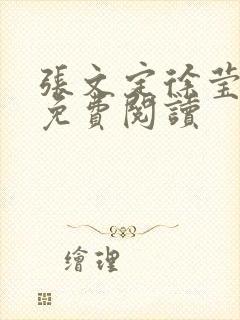 張文定徐瑩
免費閱讀
繪理